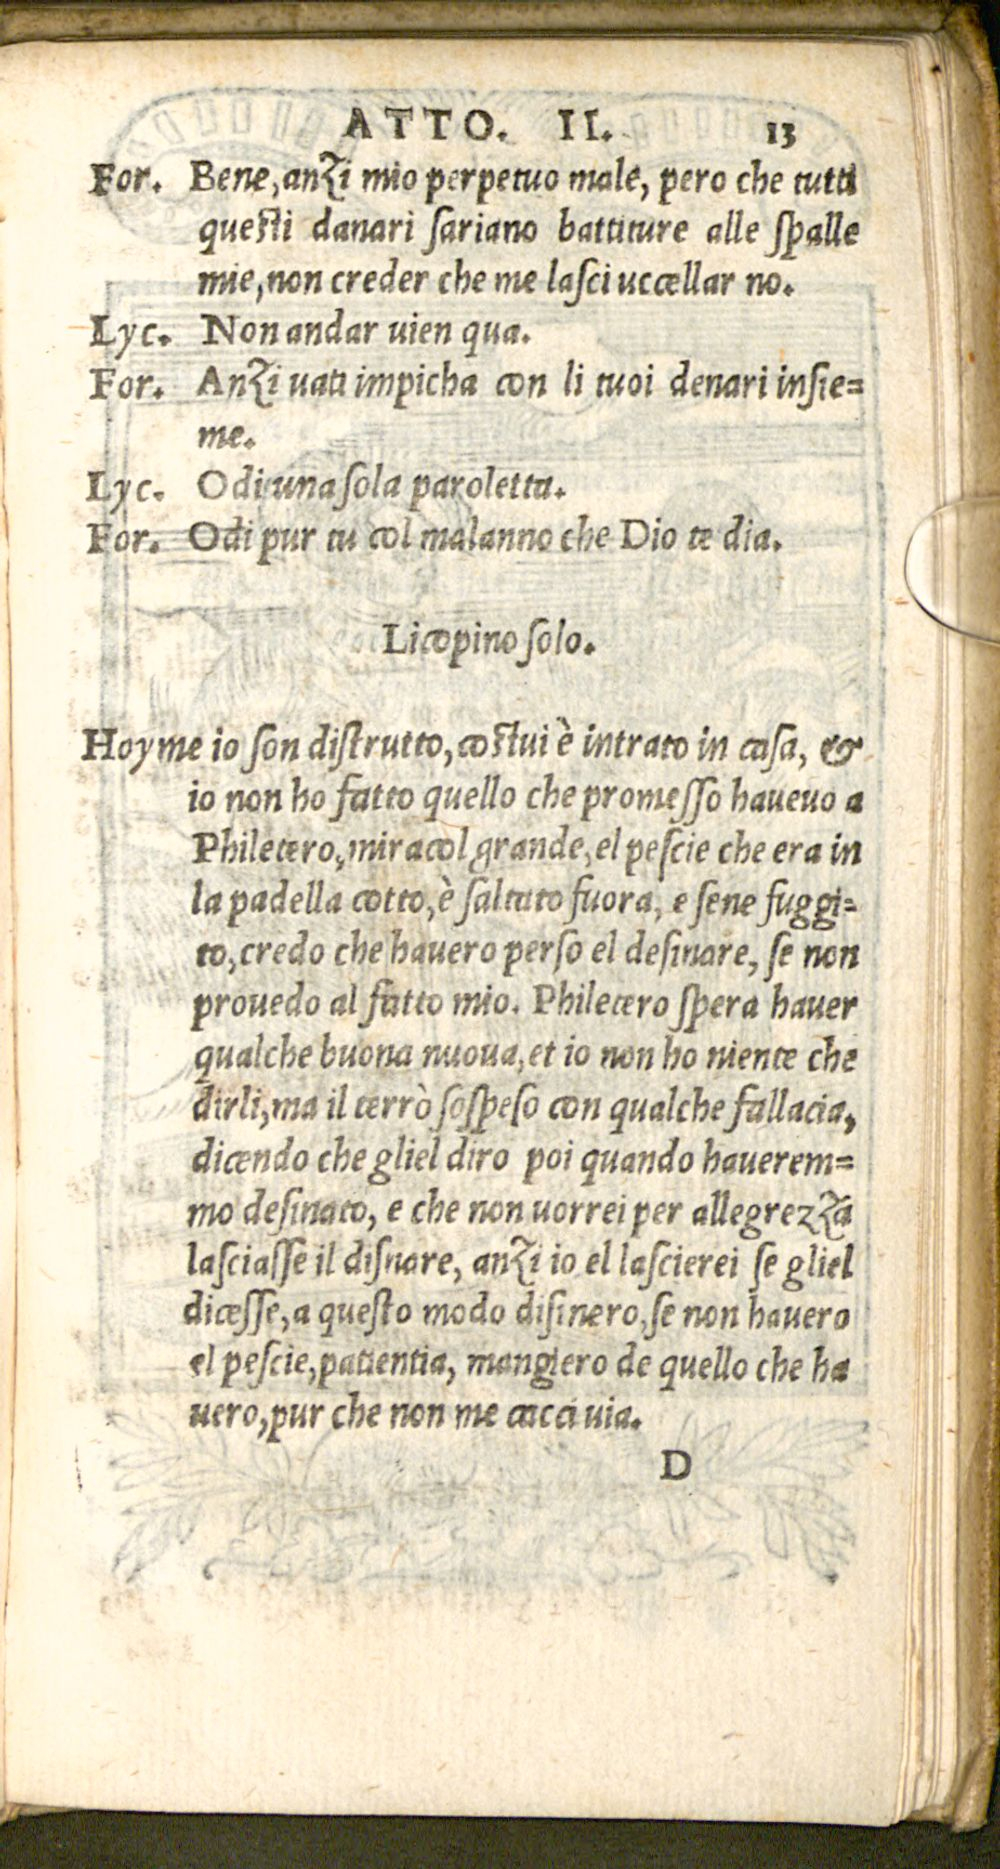 ATTO. II. 13
For. Bene, anzi mio perpetuo male, pero che tutti
questi danari sariano battiture alle spalle
mie, non creder che me lasci uccellar no.
Lyc. Non andar uien qua.
For. Anzi uati impicha con li tuoi denari insie=
me.
Lyc. Odi una sola paroletta.
For. Odi pur tu col malanno che Dio te dia.
Licopino solo.
Hoyme io son distrutto, costui è intrato in casa, &
io non ho fatto quello che promesso haueuo a
Philetero, miracol grande, el pescie che era in
la padella cotto, è saltato fuora, e sene fuggi=
to, credo che hauero perso el desinare, se non
prouedo al fatto mio. Philetero spera hauer
qualche buona nuoua, et io non ho niente che
dirli, ma il terrò sospeso con qualche fallacia,
dicendo che gliel diro poi quando hauerem=
mo desinato, e che non uorrei per allegrezza
lasciasse il disnare, anzi io el lascierei se gliel
dicesse, a questo modo disinero, se non hauero
el pescie, patientia, mangiero de quello che ha
uero, pur che non me cacci uia.
D